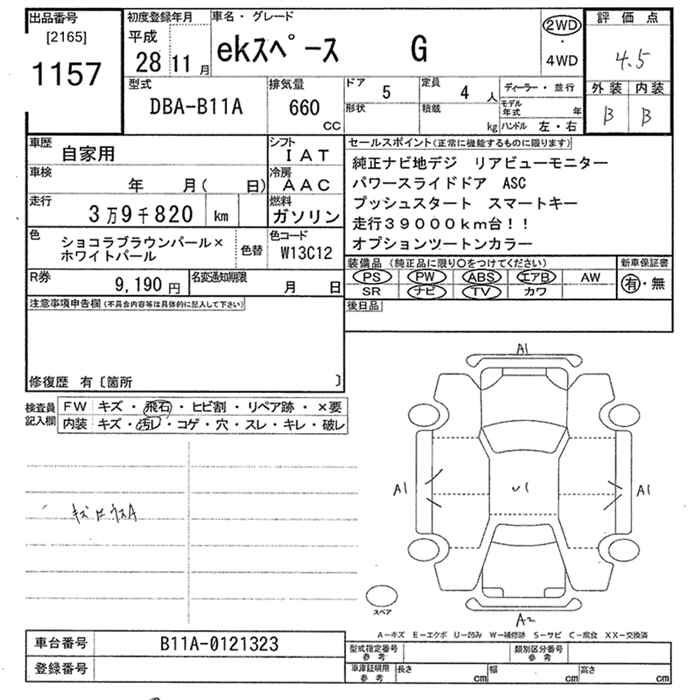 出品番号
[2165]
1157
初度登録年月
平成
28 11 月
車名・グレード
ekスペース G
2WD
・
4WD
評価点
4.5
外装 内装
B B
型式
DBA-B11A
排気量
660
CC
ドア
5
定員
4 人
形状
積載
kg
ディーラー・並行
モデル年式 年
ハンドル 左・右
車歴
自家用
シフト
IAT
車検
年 月( 日)
冷房
AAC
走行
3万9千820 km
燃料
ガソリン
色
ショコラブラウンパール×
ホワイトパール
色替
色コード
W13C12
R券
9,190 円
名変通知期限
月 日
セールスポイント(正常に機能するものに限ります)
純正ナビ地デジ リアビューモニター
パワースライドドア ASC
プッシュスタート スマートキー
走行39000km台!!
オプションツートンカラー
装備品(純正品に限り○をつけてください)
PS PW ABS エアB AW
SR ナビ TV カワ
新車保証書
有・無
後日品
注意事項申告欄(不具合内容等は具体的に記入して下さい)
修復歴 有〔箇所 〕
検査員
記入欄
FW キズ・飛石・ヒビ割・リペア跡・×要
内装 キズ・汚レ・コゲ・穴・スレ・キレ・破レ
A1
A1
U1
A1
A2
スペア
A-キズ E-エクボ U-凹み W-補修跡 S-サビ C-腐食 XX-交換済
車台番号
B11A-0121323
登録番号
型式指定番号
参考
類別区分番号
参考
車庫証明用
参考
長さ cm
幅 cm
高さ cm